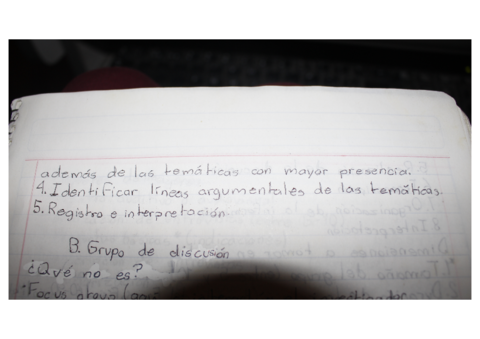 además de las temáticas con mayor presencia.
4. Identificar líneas argumentales de las temáticas.
5. Registro e interpretación
B. Grupo de discusión
¿Qué no es?
*Focus group